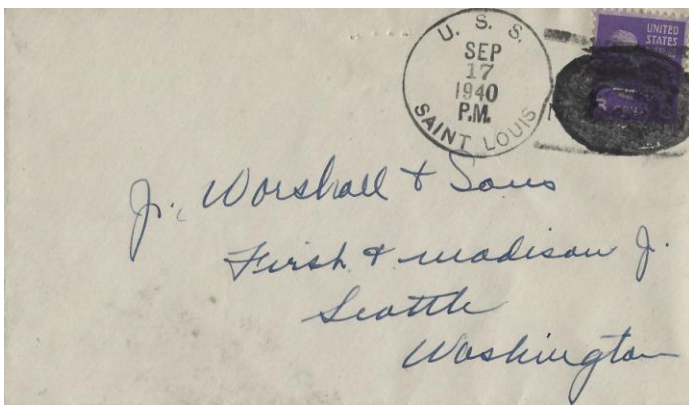 U. S. S.
SEP
17
1940
P.M.
SAINT LOUIS
UNITED
STATES
3
Jr. Worshall & Sons
First & madison J.
Seattle
Washington